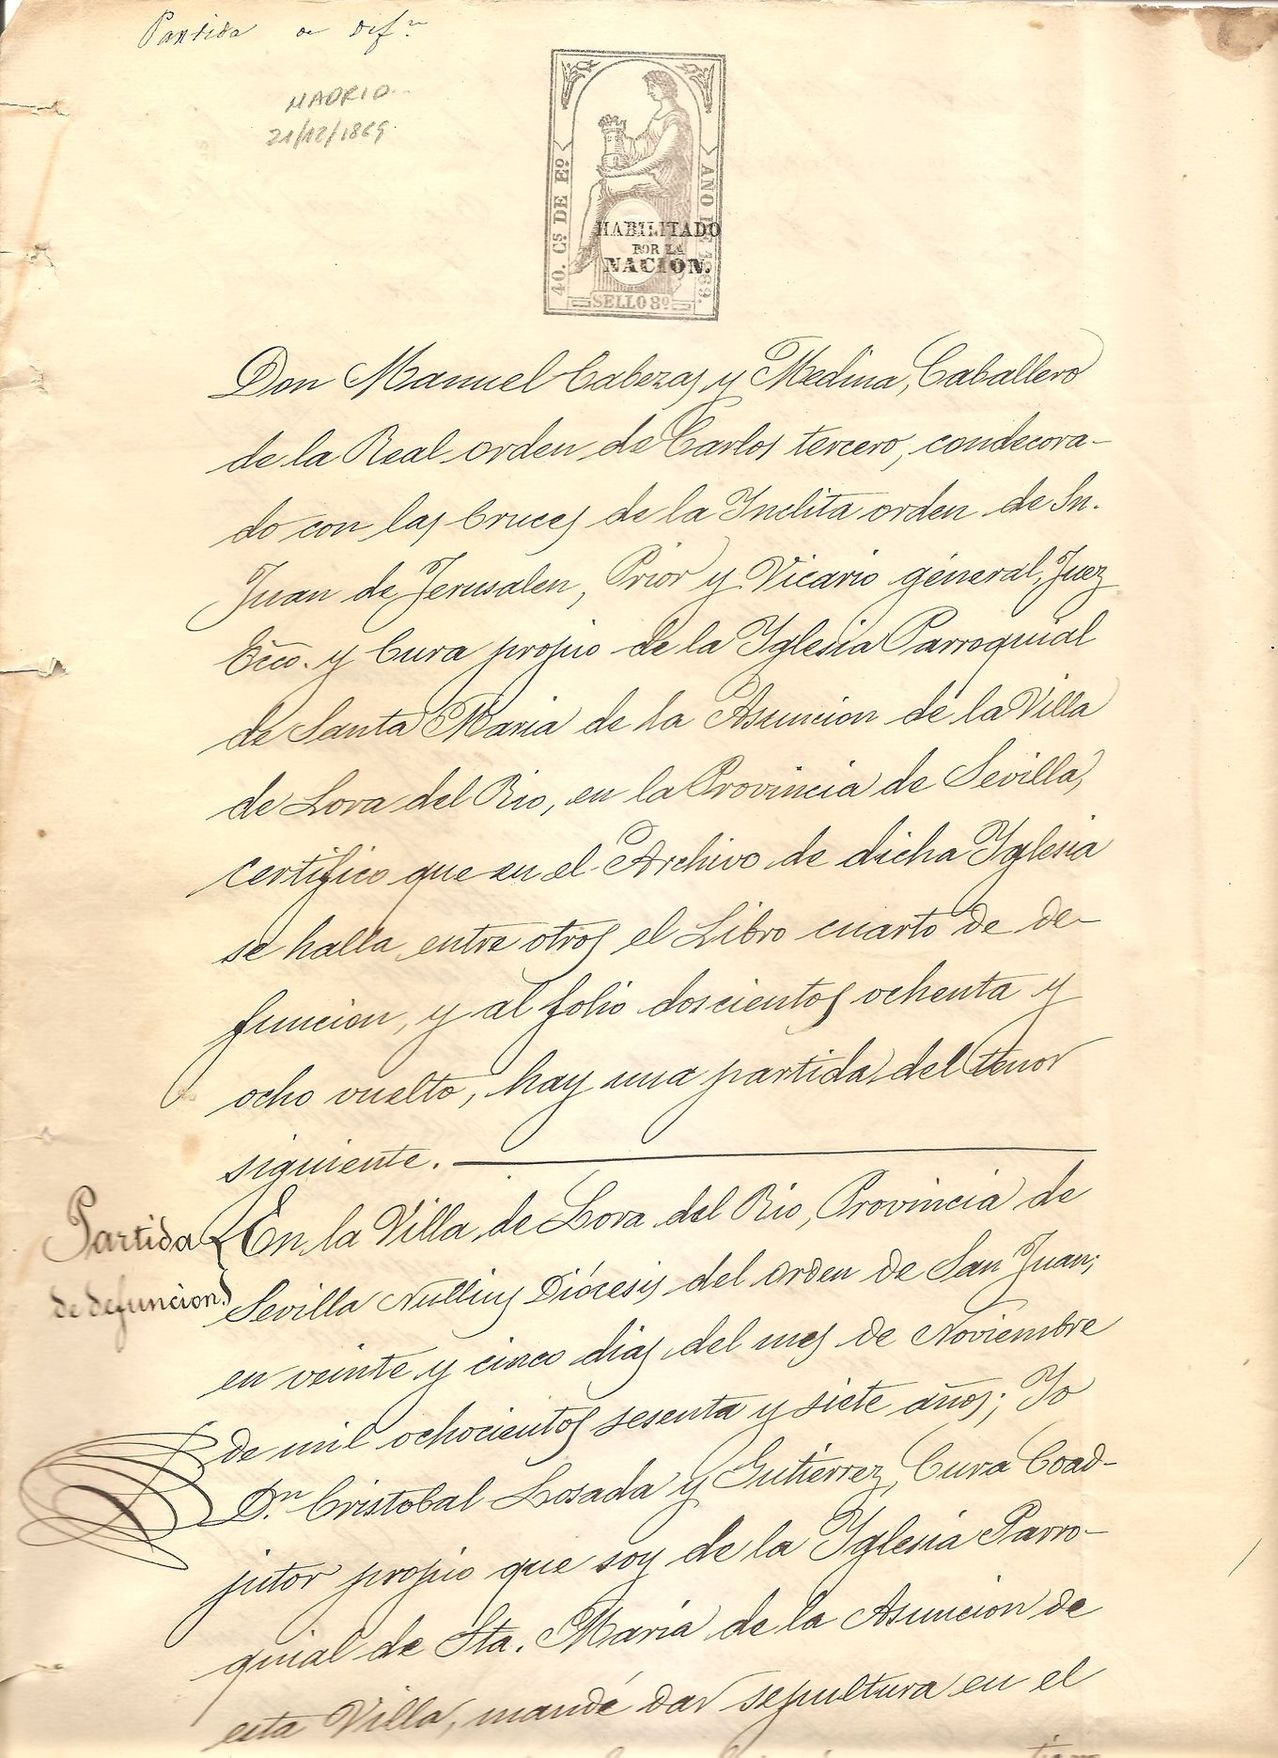 Partida de Def.n
MADRID
21/12/1869
40. Cs DE Eo.
AÑO DE 1869.
HABILITADO
POR LA
NACION.
SELLO 8o.
Don Manuel Cabezas y Medina, Caballero
de la Real orden de Carlos tercero, condecora-
do con las Cruces de la Inclita orden de Sn.
Juan de Jerusalen, Prior y Vicario géneral, Juez
Ecco. y Cura propio de la Iglesia Parroquial
de Santa Maria de la Asuncion de la Villa
de Lora del Rio, en la Provincia de Sevilla,
certifico que en el Archivo de dicha Iglesia
se halla entre otros el Libro cuarto de de-
funcion, y al folio doscientos ochenta y
ocho vuelto, hay una partida del tenor
siguiente.
Partida
de defuncion
En la Villa de Lora del Rio, Provincia de
Sevilla Nullius Diócesis del orden de San Juan;
en veinte y cinco dias del mes de Noviembre
de mil ochocientos sesenta y siete años; Yo
D.n Cristobal Losada y Gutierrez, Cura Coad-
jutor propio que soy de la Iglesia Parro-
quial de Sta. Maria de la Asuncion de
esta Villa, mandé dar sepultura en el